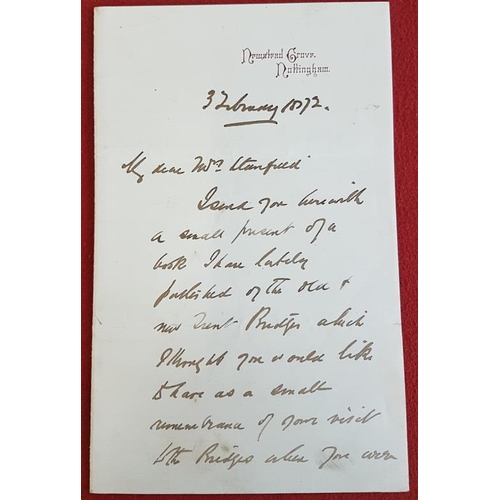 Newstead Grove.
Nottingham.
3 February 1872.
My dear Mrs. Stanfield
I send you herewith
a small present of a
book I have lately
published of the old &
new Trent Bridges which
I thought you would like
to have as a small
remembrance of your visit
to the Bridges when you were